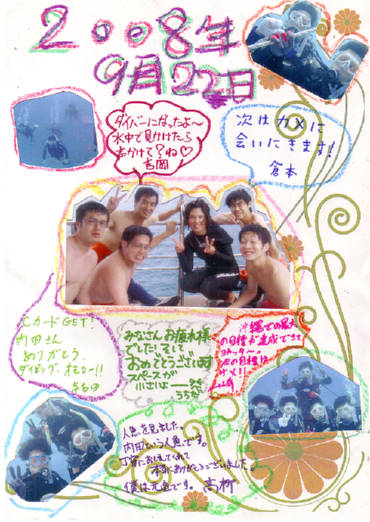 2008年
9月22日
ダイバーになったよ〜
水中で見かけたら
声かけて？ね♡
吉岡
次はカメに
会いにきます！
倉本
CカードGET！
内田さん
ありがとう。
ダイビング、オモロー!!
みなさんお疲れ様
でした！そして
おめでとうございます
スペースが
小さいよー
うちだ
沖縄での最大
の目標が達成できて
ヨカッター。
次の目標は
人魚を見ました。
内田という人魚です。
丁寧におしえてくれて
本当にありがとうございました。
僕は元気です。高柳